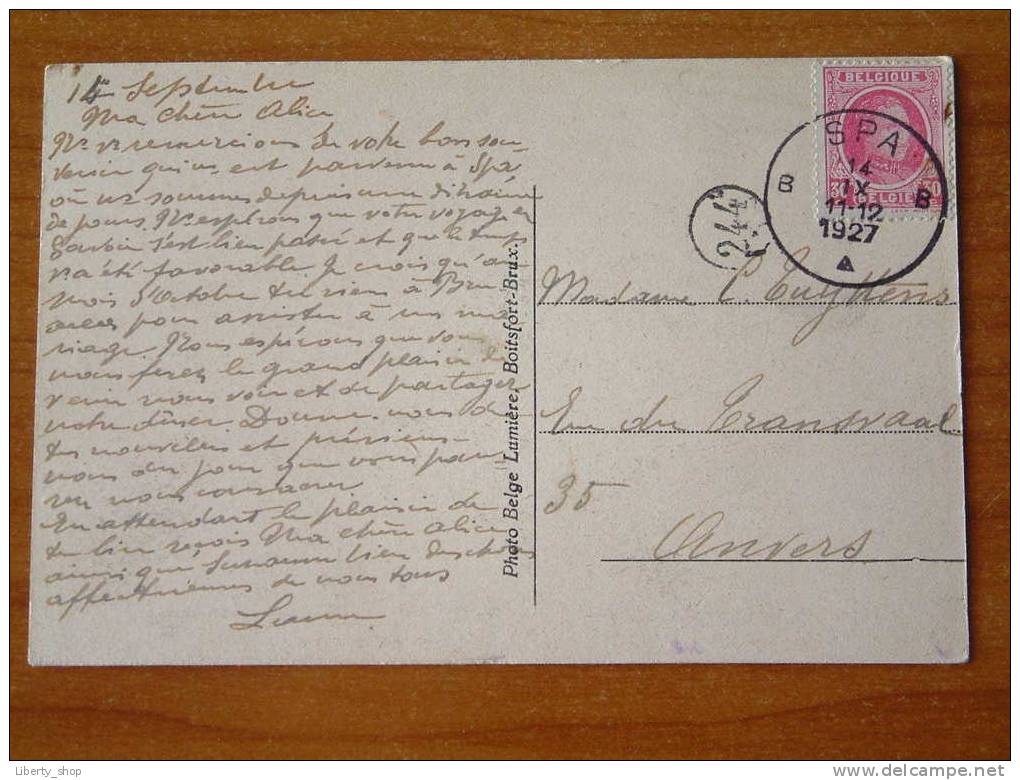 14 Septembre
Ma chère Alice
Ns vs remercions de votre bon sou-
venir qui ns est parvenu à Spa
où ns sommes depuis une dizaine
de jours. Ns espérons que votre voyage en
Savoie s'est bien passé et que le temps
vs a été favorable. Je crois qu'au
mois d'Octobre tu viens à Bru-
xelles pour assister à un ma-
riage. Nous espérons que vous
nous ferez le grand plaisir de
venir nous voir et de partager
notre dîner. Donne-nous de
tes nouvelles et préviens-
nous du jour que vous pour-
rez nous consacrer
En attendant le plaisir de
te lire reçois Ma chère Alice
ainsi que bien des choses
affectueuses de nous tous
Photo Belge Lumière, Boitsfort-Brux.
BELGIQUE
BELGIE
SPA
14
IX
11-12
1927
B B
244
Madame
Rue du Transvaal
35
Anvers
Liberty_shop
delcampe.net